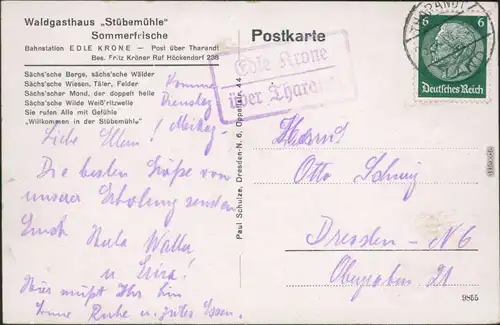 Waldgasthaus „Stübemühle"
Sommerfrische
Bahnstation EDLE KRONE — Post über Tharandt
Bes. Fritz Kröner Ruf Höckendorf 238
Sächs'sche Berge, sächs'sche Wälder
Sächs'sche Wiesen, Täler, Felder
Sächs'scher Mond, der doppelt helle
Sächs'sche Wilde Weiß'ritzwelle
Sie rufen Alle mit Gefühle
„Willkommen in der Stübemühle"
Komme
Dienstag
Mittag
Liebe Eltern!
Die besten Grüße von
unserer Erholung senden
Euch Hula Walter
u.
Hier müßt Ihr hin
Ruhe u. gutes Essen.
Paul Schulze, Dresden-N. 6, Oppelstr. 44
Postkarte
Edle Krone
über Tharandt
THARANDT
6 6
Deutsches Reich
Herrn
Otto
Dresden - N 6
Obergraben 21
9855